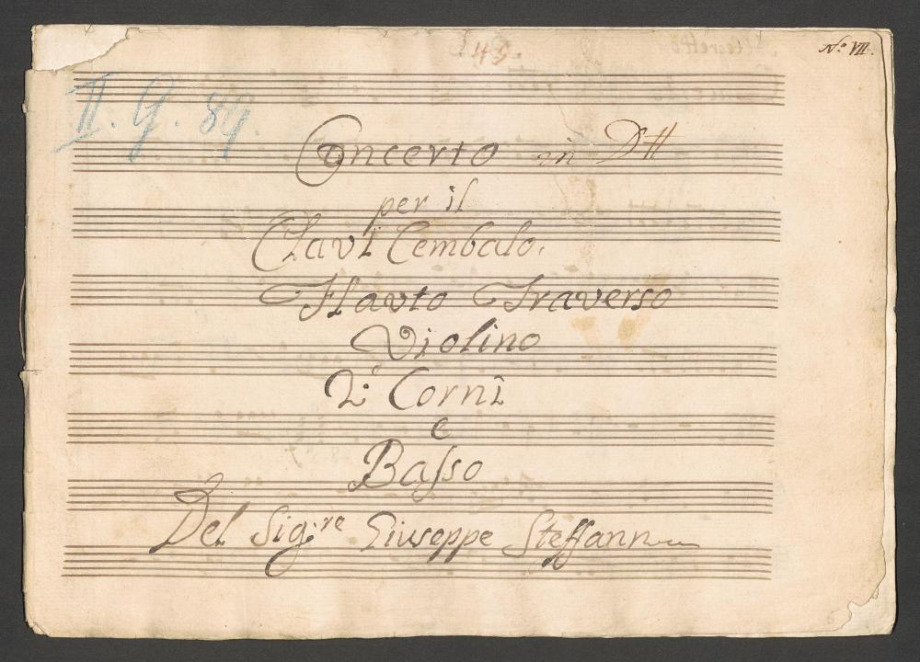 149.
No: VII.
II. G. 89.
Concerto in D#
per il
Clavi Cembalo.
Flauto Traverso
Violino
2: Corni
e
Basso
Del Sig:re Giuseppe Steffann